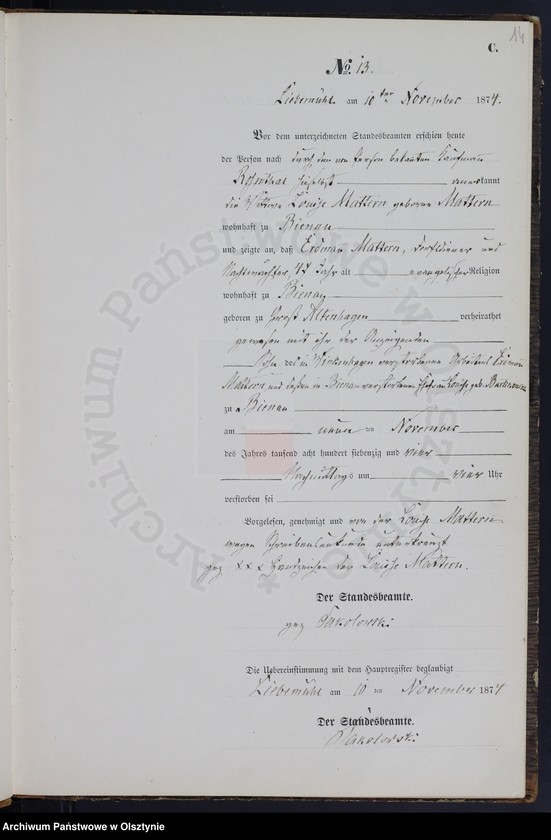 14
C.
No. 13.
Liebemühl am 10ten November 1874.
Vor dem unterzeichneten Standesbeamten erschien heute
der Person nach durch den von Person bekannten Kaufmann
Rosenthal hieselbst anerkannt
die Wittwe Louise Mattern geborene Mattern
wohnhaft zu Bienau
und zeigte an, daß Erdman Mattern, Dorfdiener und
Nachtwächter, Jahr alt evangelischer Religion
wohnhaft zu Bienau
geboren zu Forst Altenhagen verheirathet
gewesen mit ihr der Anzeigenden
Sohn des in Winkenhagen verstorbenen Arbeiters
Mattern und dessen in Bienau verstorbenen Ehefrau Louise geb.
zu Bienau
am neun ten November
des Jahres tausend acht hundert siebenzig und vier
Nachmittags um vier Uhr
verstorben sei
Vorgelesen, genehmigt und von der Louise Mattern
wegen Schreibensunkunde unterkreuzt
gez x x x Handzeichen der Louise Mattern.
Der Standesbeamte.
gez Sakolowski
Die Uebereinstimmung mit dem Hauptregister beglaubigt
Liebemühl am 10 ten November 1874
Der Standesbeamte.
Sakolowski
Archiwum Państwowe w Olsztynie
Archiwum Państwowe w Olsztynie